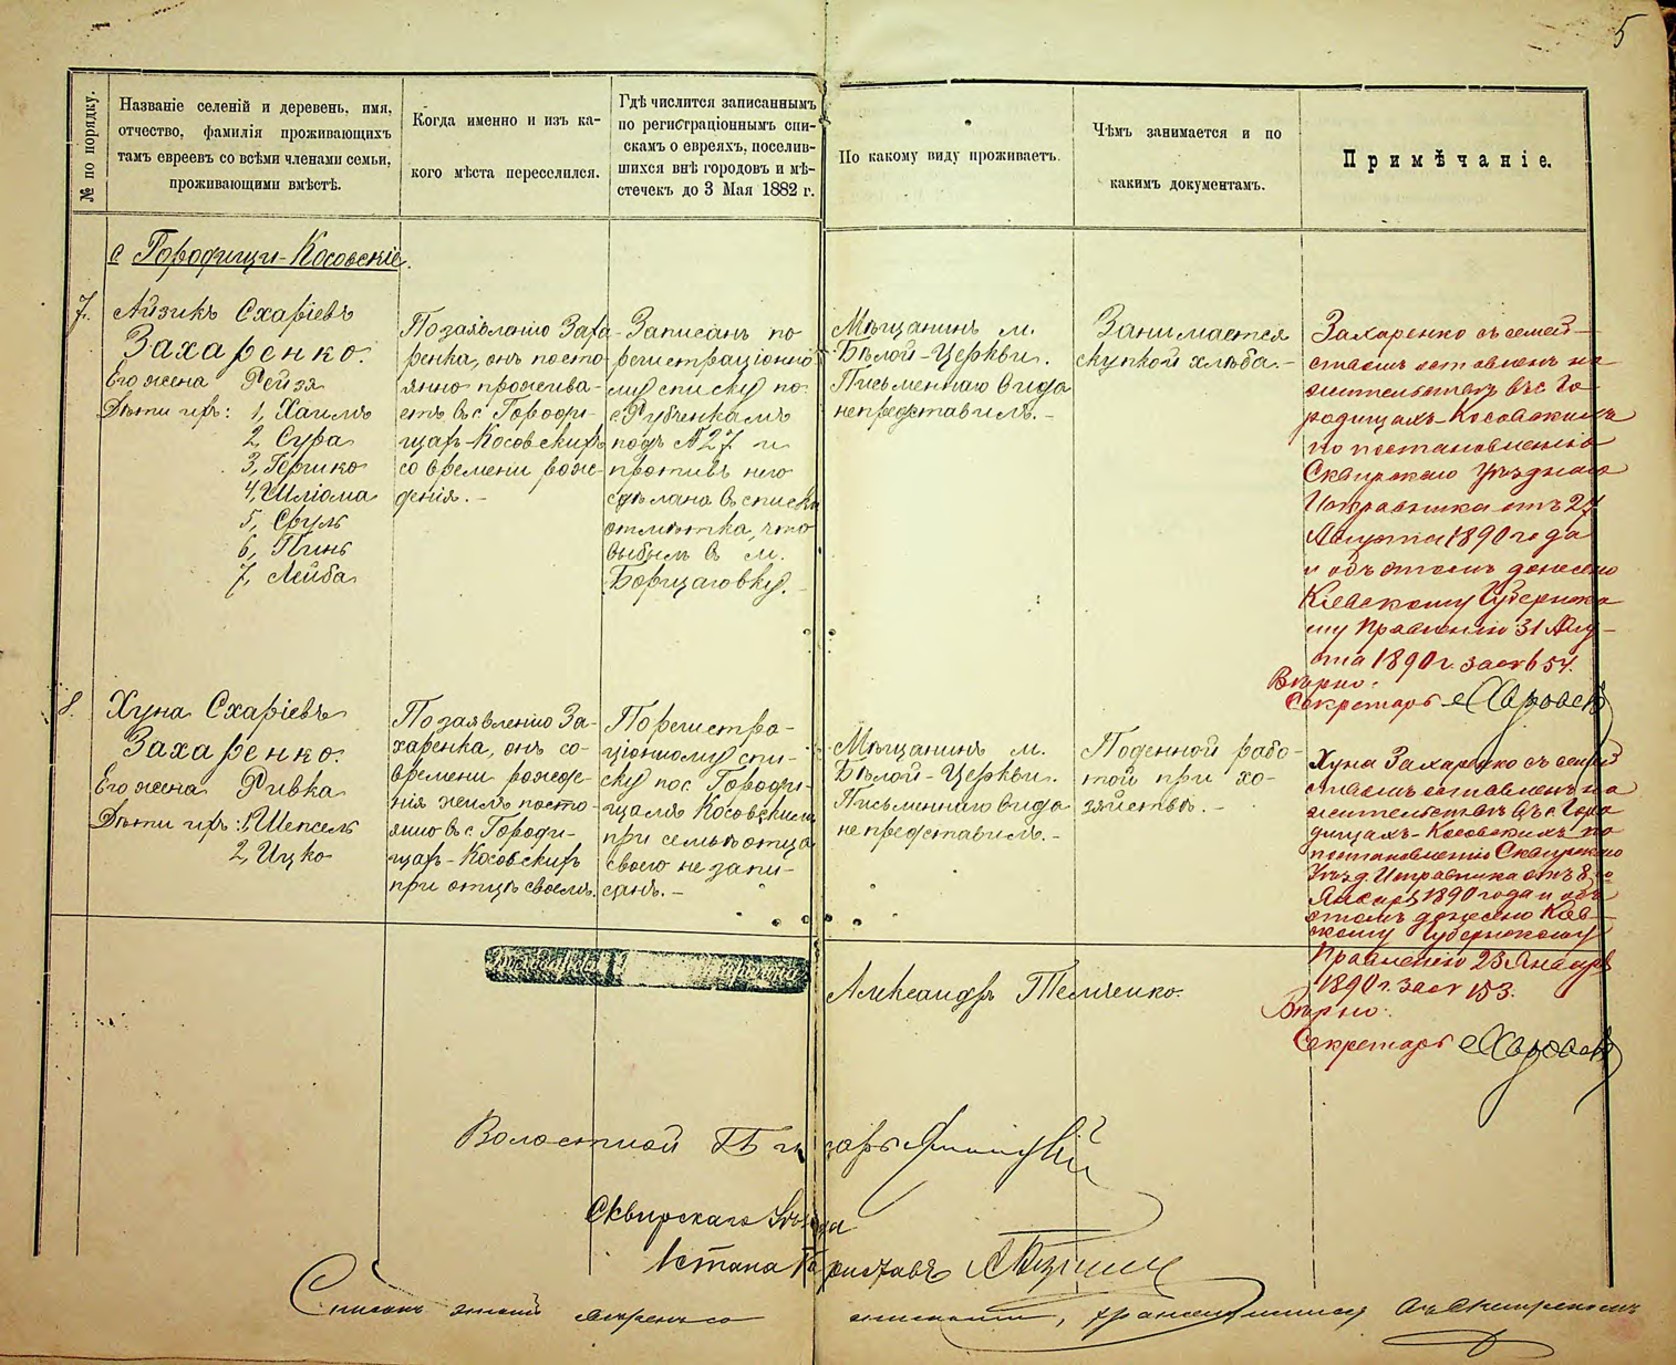 5
№ по порядку.
Названіе селеній и деревень, имя,
отчество, фамилія проживающихъ
тамъ евреевъ со всѣми членами семьи,
проживающими вмѣстѣ.
Когда именно и изъ ка-
кого мѣста переселился.
Гдѣ числится записаннымъ
по регистраціоннымъ спи-
скамъ о евреяхъ, поселив-
шихся внѣ городовъ и мѣ-
стечекъ до 3 Мая 1882 г.
По какому виду проживаетъ.
Чѣмъ занимается и по
какимъ документамъ.
Примѣчаніе.
с Городищи-Косовскіе.
7.
Айзикъ Схаріевъ
Захаренко.
Его жена Рейзя
Дѣти ихъ: 1, Хаимъ
2, Сура
3, Гершко
4, Шліома
5, Сруль
6, Пинь
7, Лейба
По заявленію Заха-
ренка, онъ посто-
янно прожива-
етъ въ с. Городи-
щахъ-Косовскихъ
со времени рож-
денія.-
Записанъ по
регистраціонно-
му списку по
с. Рубченкамъ
подъ №27 и
противъ него
сдѣлана въ списки
отмѣтка, что
выбылъ въ м.
Борщаговку.-
Мѣщанинъ м.
Бѣлой-Церкви.
Письменнаго вида
не представилъ.-
Занимается
скупкой хлѣба.-
Захаренко съ семей-
ствомъ оставленъ на
жительствѣ въ с. Го-
родищахъ-Косовскихъ
по постановленію
Сквирскаго Уѣзднаго
Исправника отъ 27
Августа 1890 года
и объ этомъ донесено
Кіевскому Губернско-
му Правленію 31 Авгу-
ста 1890 г. за №
Вѣрно:
Секретарь
8.
Хуна Схаріевъ
Захаренко.
Его жена Ривка
Дѣти ихъ: 1, Шепсель
2, Ицко
По заявленію За-
харенка, онъ со
времени рожде-
нія жилъ посто-
янно въ с. Городи-
щахъ-Косовскихъ
при отцѣ своемъ.
По регистра-
ціонному спи-
ску по с. Городи-
щамъ Косовскимъ
при семьѣ отца
своего не запи-
санъ.-
Мѣщанинъ м.
Бѣлой-Церкви.
Письменнаго вида
не представилъ.-
Поденной рабо-
той при хо-
зяйствѣ.-
Хуна Захаренко съ семей-
ствомъ оставленъ на
жительствѣ въ с. Горо-
дищахъ-Косовскихъ по
постановленію Сквирскаго
Уѣзд. Исправника отъ 8го
Января 1890 года и объ
этомъ донесено Кіев-
скому Губернскому
Правленію 23 Января
1890 г. за № 153.
Вѣрно:
Секретарь
Александръ Темченко.
Волостной Писарь
Сквирскаго Уѣзда
1 стана Приставъ
Списокъ этотъ вѣренъ со
спискомъ, хранящимся въ Сквирскомъ